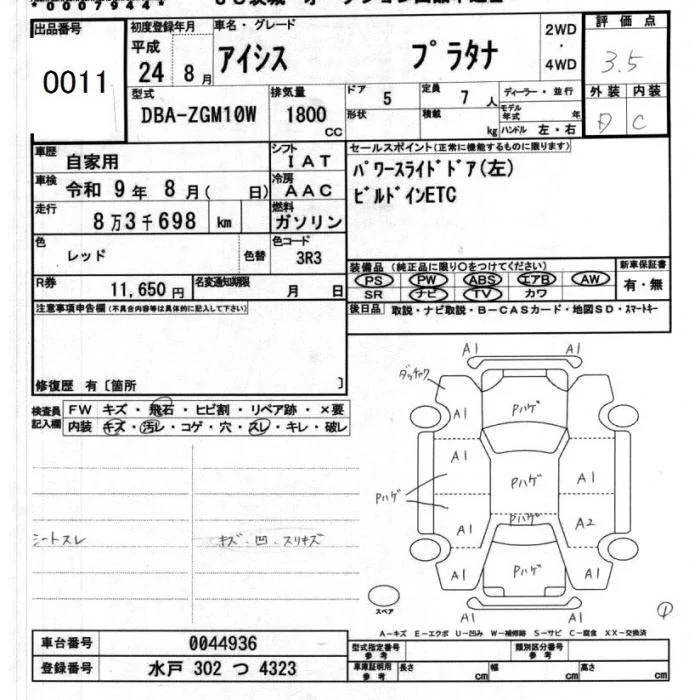 出品番号
0011
初度登録年月
平成
24 8月
車名・グレード
アイシス プラタナ
2WD
・
4WD
評価点
3.5
外装 内装
D C
型式
DBA-ZGM10W
排気量
1800
CC
ドア 5
定員 7 人
形状
積載
kg
ディーラー・並行
モデル年式 年
ハンドル 左・右
車歴 自家用
シフト IAT
車検 令和 9年 8月( 日)
冷房 AAC
走行 8万3千698 km
燃料 ガソリン
色 レッド 色替
色コード 3R3
R券 11,650円
名変通知期限 月 日
セールスポイント(正常に機能するものに限ります)
パワースライドドア(左)
ビルドインETC
装備品(純正品に限り○をつけてください)
PS PW ABS エアB AW
SR ナビ TV カワ
新車保証書
有・無
後日品 取説・ナビ取説・B-CASカード・地図SD・スマートキー
注意事項申告欄(不具合内容等は具体的に記入して下さい)
修復歴 有〔箇所 〕
検査員記入欄
FW キズ・飛石・ヒビ割・リペア跡・×要
内装 キズ・汚レ・コゲ・穴・スレ・キレ・破レ
シートスレ
キズ・凹・スリキズ
A1 A1
ダッチャク
A1 Pハゲ A1
A1 Pハゲ A1
Pハゲ
Pハゲ
A1 A2
A1 Pハゲ A1
A1 A1
スペア
①
A-キズ E-エクボ U-凹み W-補修跡 S-サビ C-腐食 XX-交換済
車台番号 0044936
登録番号 水戸 302 つ 4323
型式指定番号
参考
類別区分番号
参考
車庫証明用
参考
長さ cm 幅 cm 高さ cm